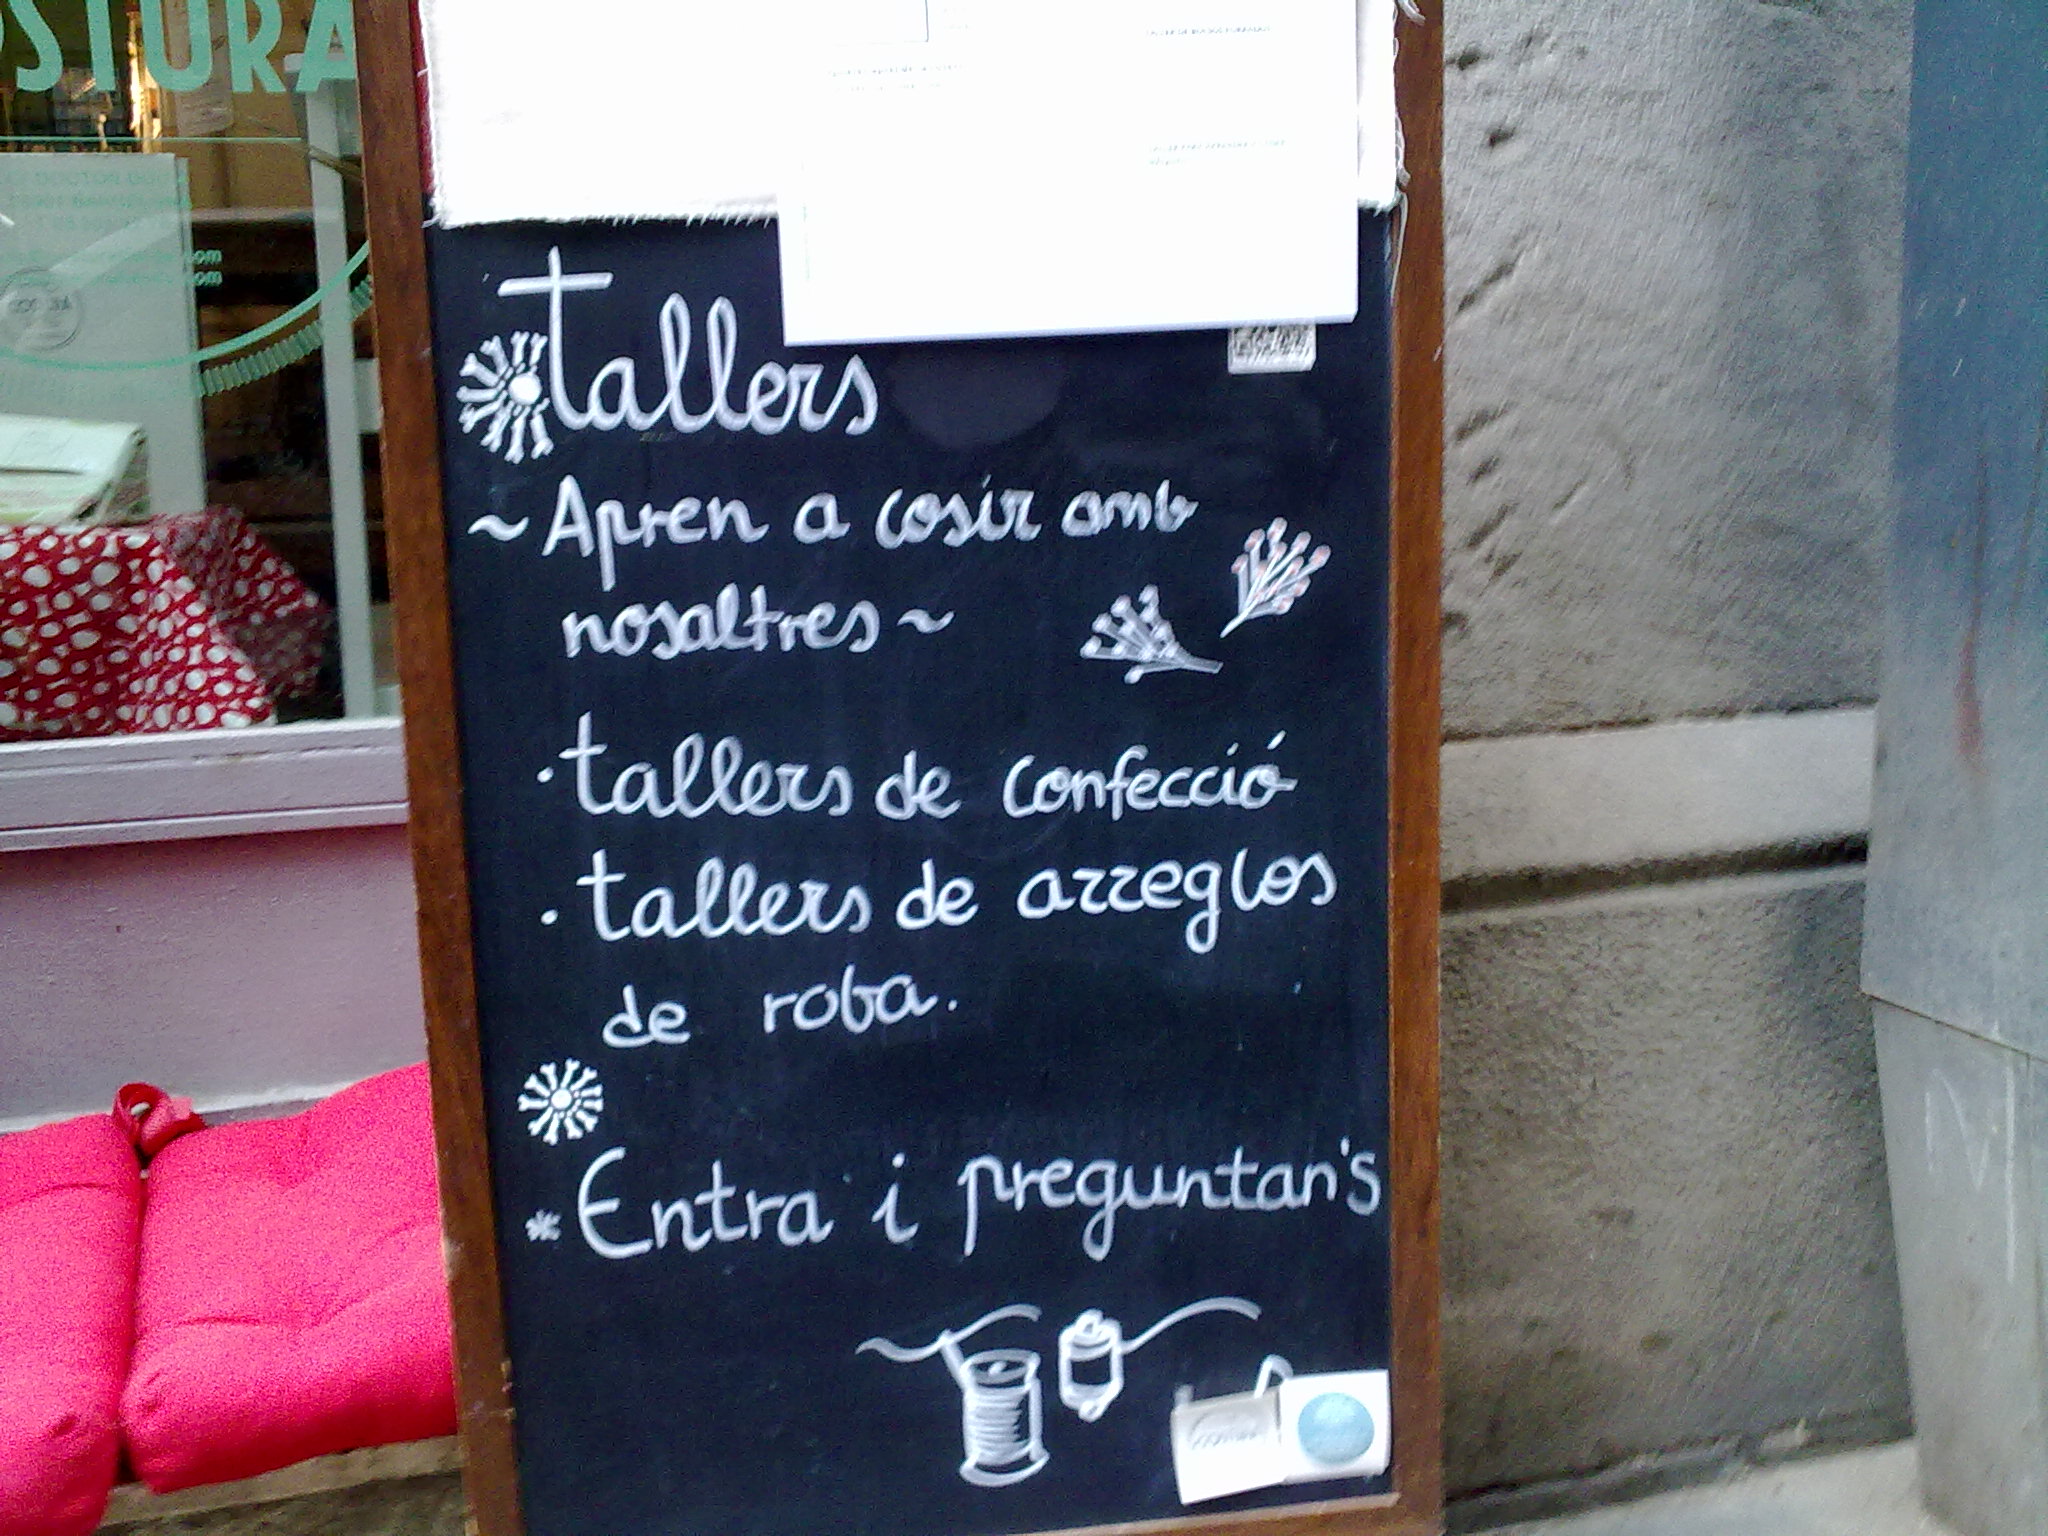 OSTURA
tallers
~ Apren a cosir amb
nosaltres ~
· tallers de confecció
· tallers de arreglos
de roba.
* Entra i preguntan's